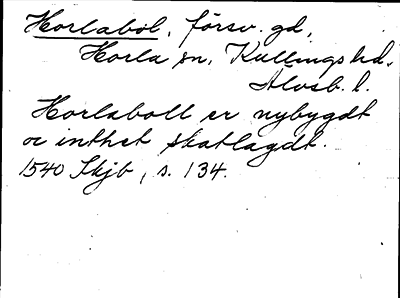 Horlaböl, försv. gd,
Horla sn, Kullings hd.
Älvsb. l.
Horlaboll er nybygdt
oc inthet skatlagdt.
1540 Skjb, s. 134.